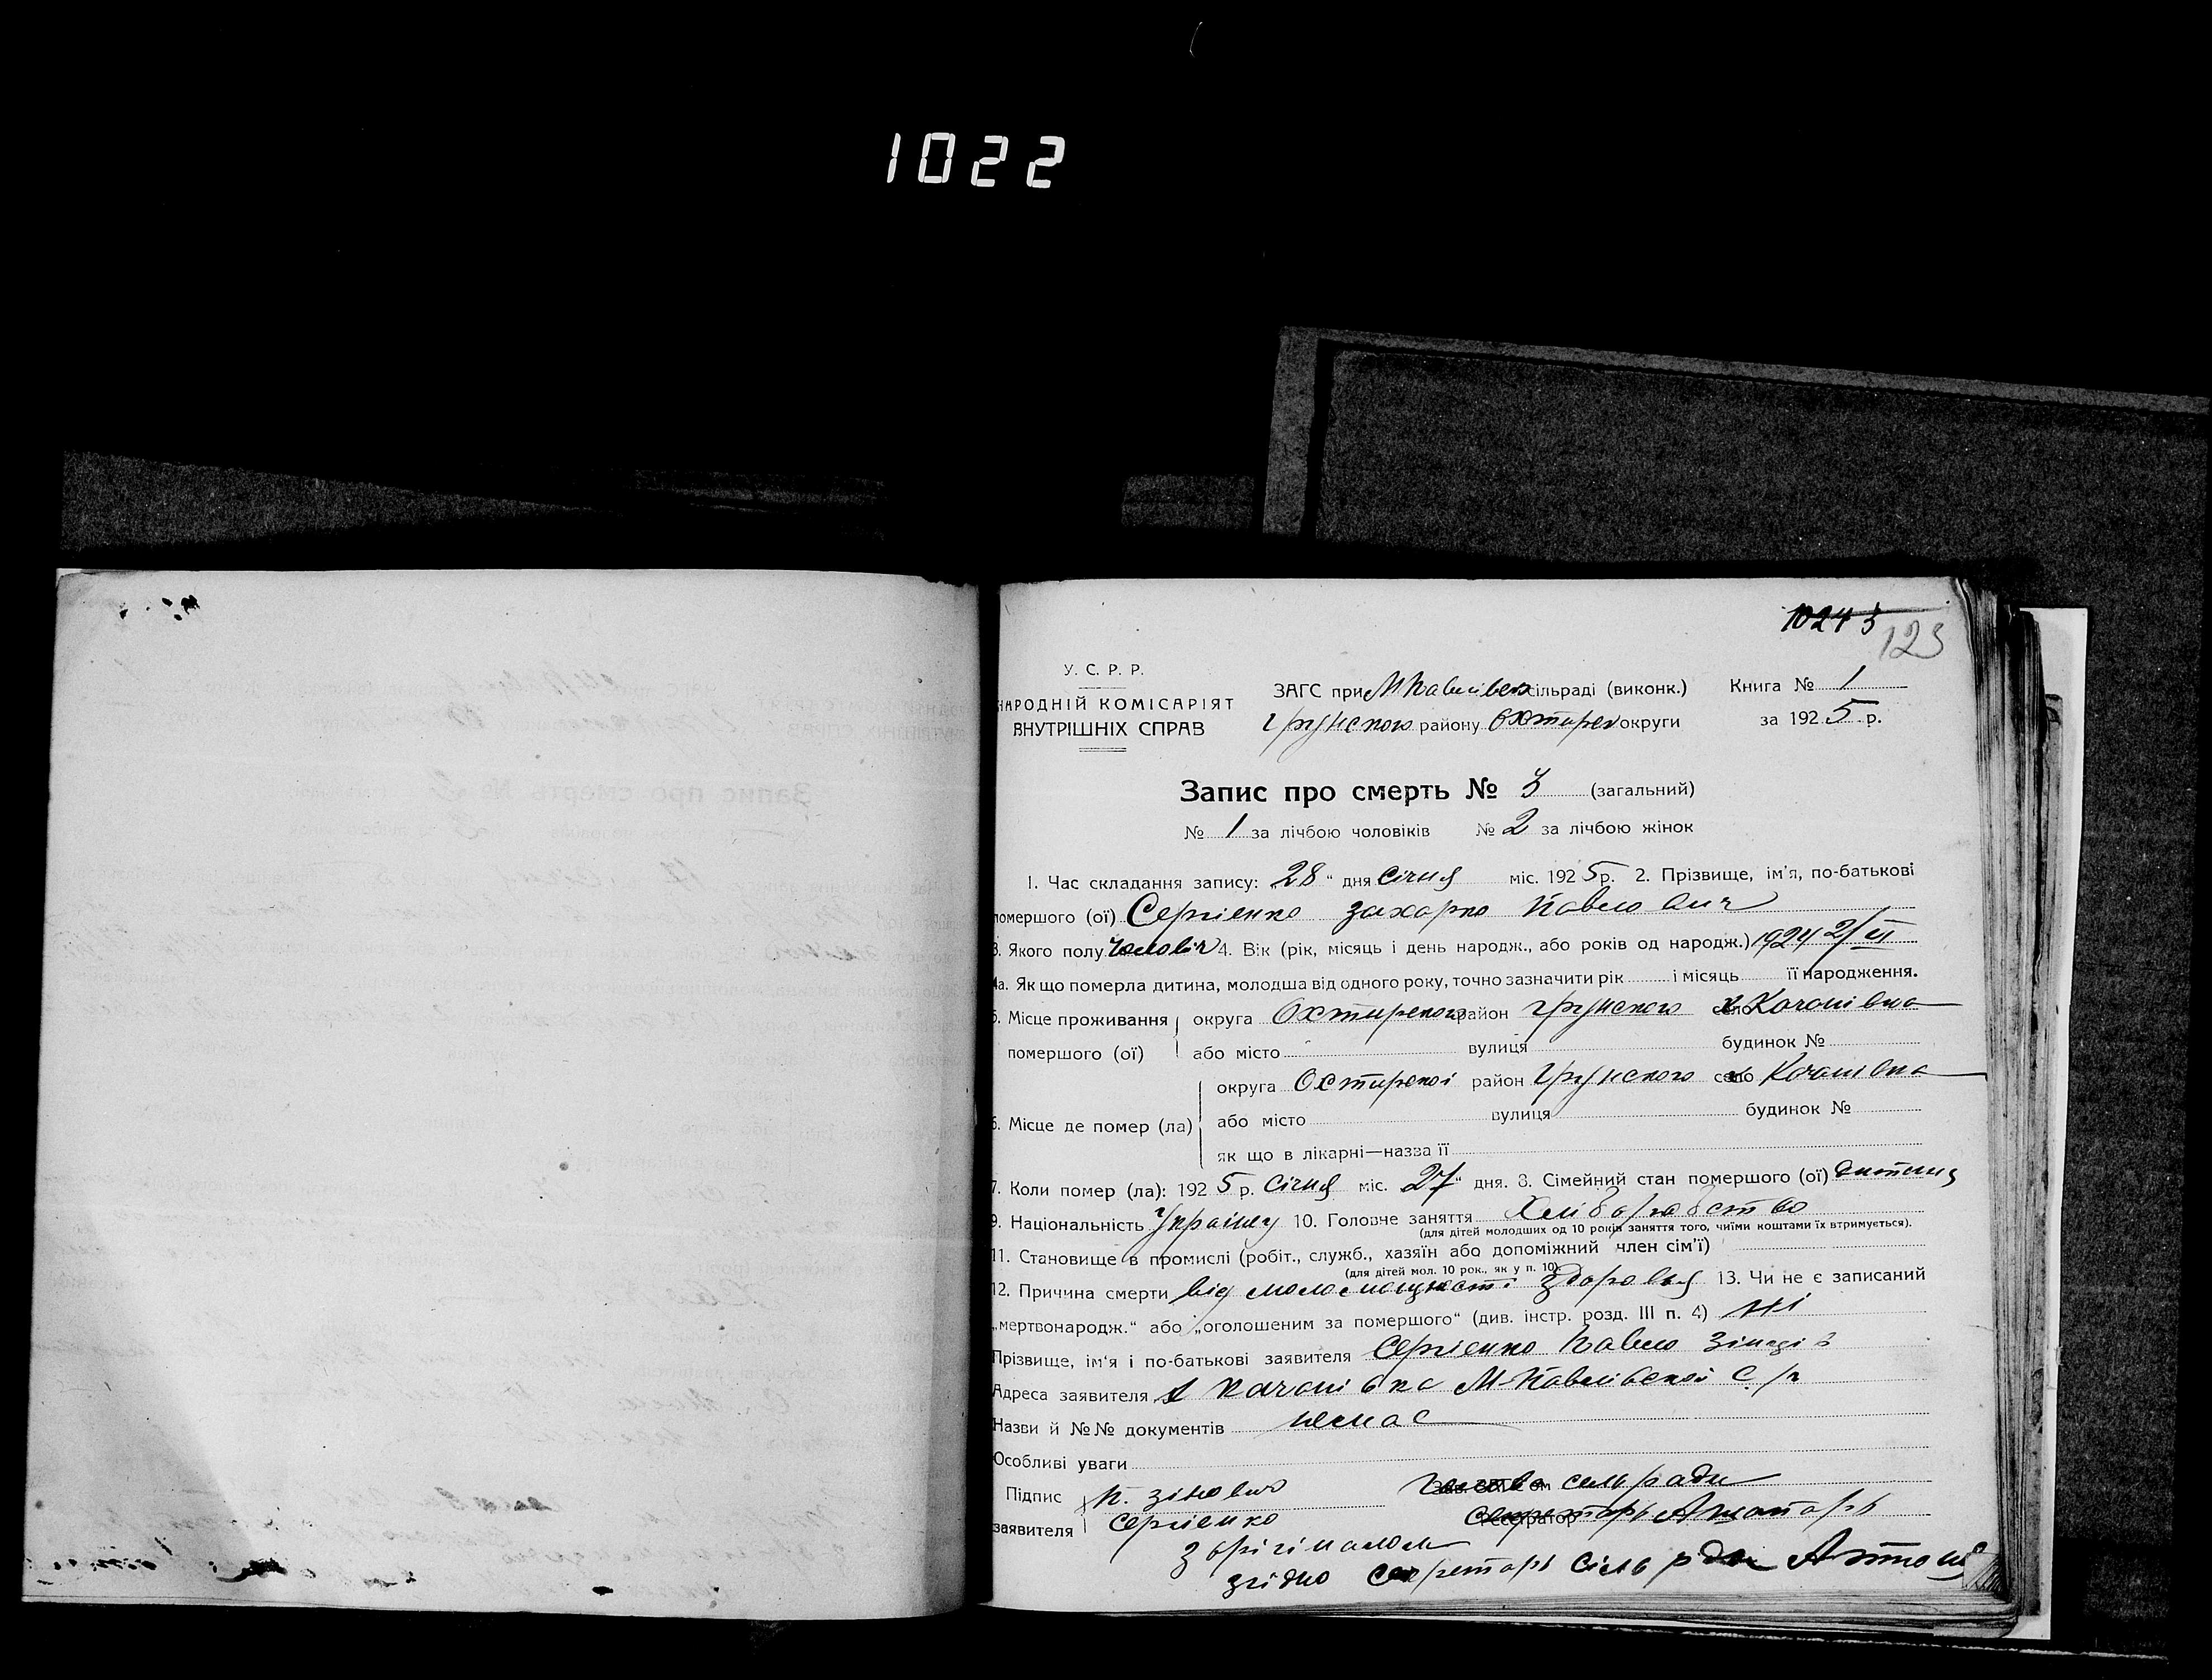 1022
10243
123
У. С. Р. Р.
НАРОДНІЙ КОМІСАРІЯТ
ВНУТРІШНІХ СПРАВ
ЗАГС при М Павлівск сільраді (виконк.) Книга № 1
Грунского району Охтирск округи за 1925 р.
Запис про смерть № 3 (загальний)
№ 1 за лічбою чоловіків № 2 за лічбою жінок
1. Час складання запису: 28 " дня січня міс. 1925 р. 2. Прізвище, ім'я, по-батькові
помершого (ої) Сергіенко Захарко Павлович
3. Якого полу чоловіч 4. Вік (рік, місяць і день народж., або років од народж.) 1924 2/VI
4а. Як що померла дитина, молодша від одного року, точно зазначити рік і місяць її народження.
5. Місце проживання округа Охтирского район Грунского село Качанівка
помершого (ої) або місто вулиця будинок №
округа Охтирскої район Грунского село Качанівка
6. Місце де помер (ла) або місто вулиця будинок №
як що в лікарні—назва її
7. Коли помер (ла): 1925 р. січня міс. 27 " дня. 8. Сімейний стан помершого (ої) дитина
9. Національність Українец 10. Головне заняття Хліборобство
(для дітей молодших од 10 років заняття того, чиїми коштами їх втримується).
11. Становище в промислі (робіт., служб., хазяїн або допоміжний член сім'ї)
(для дітей мол. 10 рок., як у п. 10)
12. Причина смерти від маломощності здоровья 13. Чи не є записаний
„мертвонародж." або „оголошеним за помершого" (див. інстр. розд. III п. 4) Ні
Прізвище, ім'я і по-батькові заявителя Сергіенко Павло
Адреса заявителя х Качанівка М-Павлівской С/р
Назви й №№ документів немає
Особливі уваги
Підпис П. Зінович Голова сельради
заявителя Сергіенко Реєстратор секретарь
З орігіналом
згідно секретарь сільради